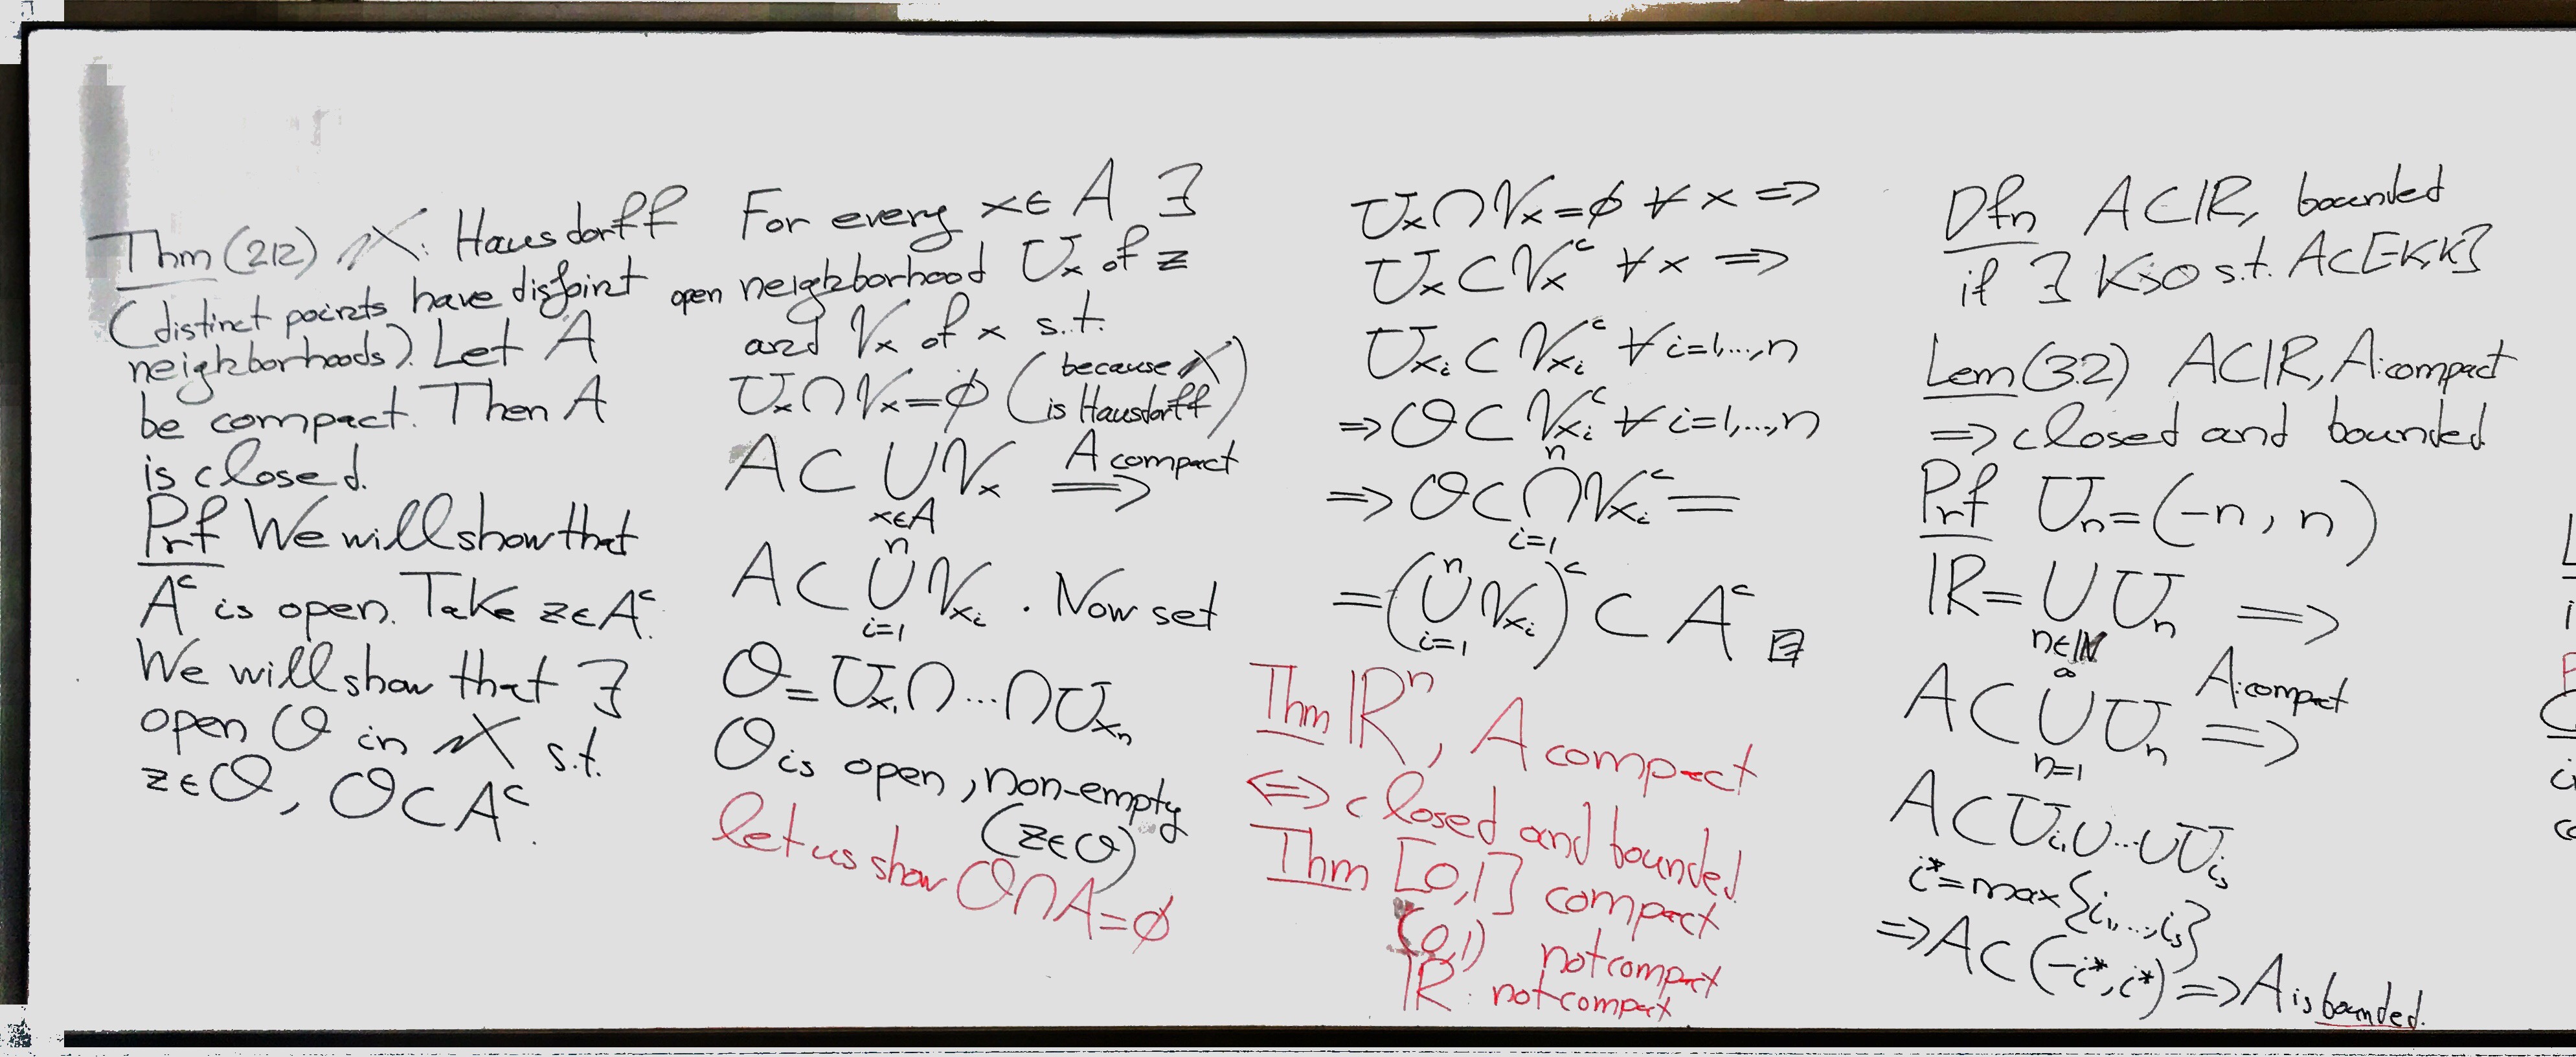 Thm (2.12) X: Hausdorff
(distinct points have disjoint
neighborhoods). Let A
be compact. Then A
is closed.
Prf We will show that
Aᶜ is open. Take z∈Aᶜ.
We will show that ∃
open O in X s.t.
z∈O, O⊂Aᶜ.
For every x∈A ∃
open neighborhood Uₓ of z
and Vₓ of x s.t.
Uₓ∩Vₓ=∅ (because X is Hausdorff)
A⊂ ∪_{x∈A} Vₓ ⟹ (A compact)
A⊂ ∪_{i=1}^{n} V_{x_i}. Now set
O=U_{x_1}∩...∩U_{x_n}
O is open, non-empty
(z∈O)
let us show O∩A=∅
Uₓ∩Vₓ=∅ ∀x ⟹
Uₓ⊂Vₓᶜ ∀x ⟹
U_{x_i}⊂V_{x_i}ᶜ ∀i=1,...,n
⟹O⊂V_{x_i}ᶜ ∀i=1,...,n
⟹O⊂ ∩_{i=1}^{n} V_{x_i}ᶜ=
=(∪_{i=1}^{n} V_{x_i})ᶜ⊂Aᶜ
Thm ℝⁿ, A compact
⟺ closed and bounded
Thm [0,1] compact
(0,1) not compact
ℝ: not compact
Dfn A⊂ℝ, bounded
if ∃ K>0 s.t. A⊂[-K,K]
Lem (3.2) A⊂ℝ, A:compact
⟹ closed and bounded
Prf Uₙ=(-n, n)
ℝ= ∪_{n∈ℕ} Uₙ ⟹
A⊂ ∪_{n=1}^{∞} Uₙ ⟹ (A:compact)
A⊂U_{i_1}∪...∪U_{i_s}
i*=max{i₁,...,i_s}
⟹A⊂(-i*,i*)⟹A is bounded.